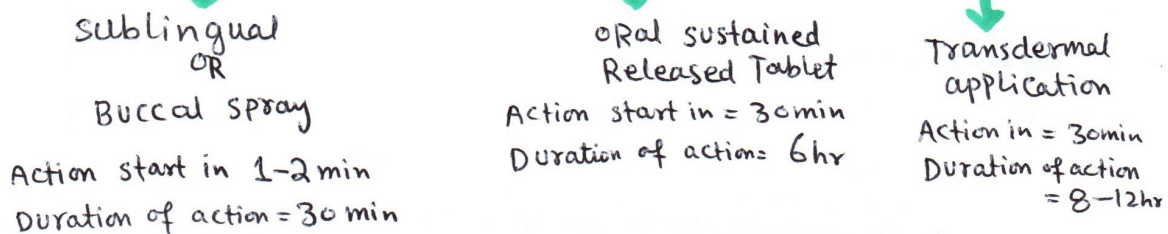 sublingual
OR
Buccal spray
Action start in 1-2 min
Duration of action = 30 min
oRal sustained
Released Tablet
Action start in = 30min
Duration of action= 6hr
Transdermal
application
Action in = 30min
Duration of action
= 8-12hr